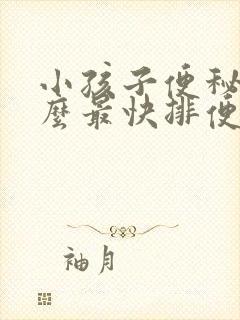 小孩子便秘
麼最快排便
袖月